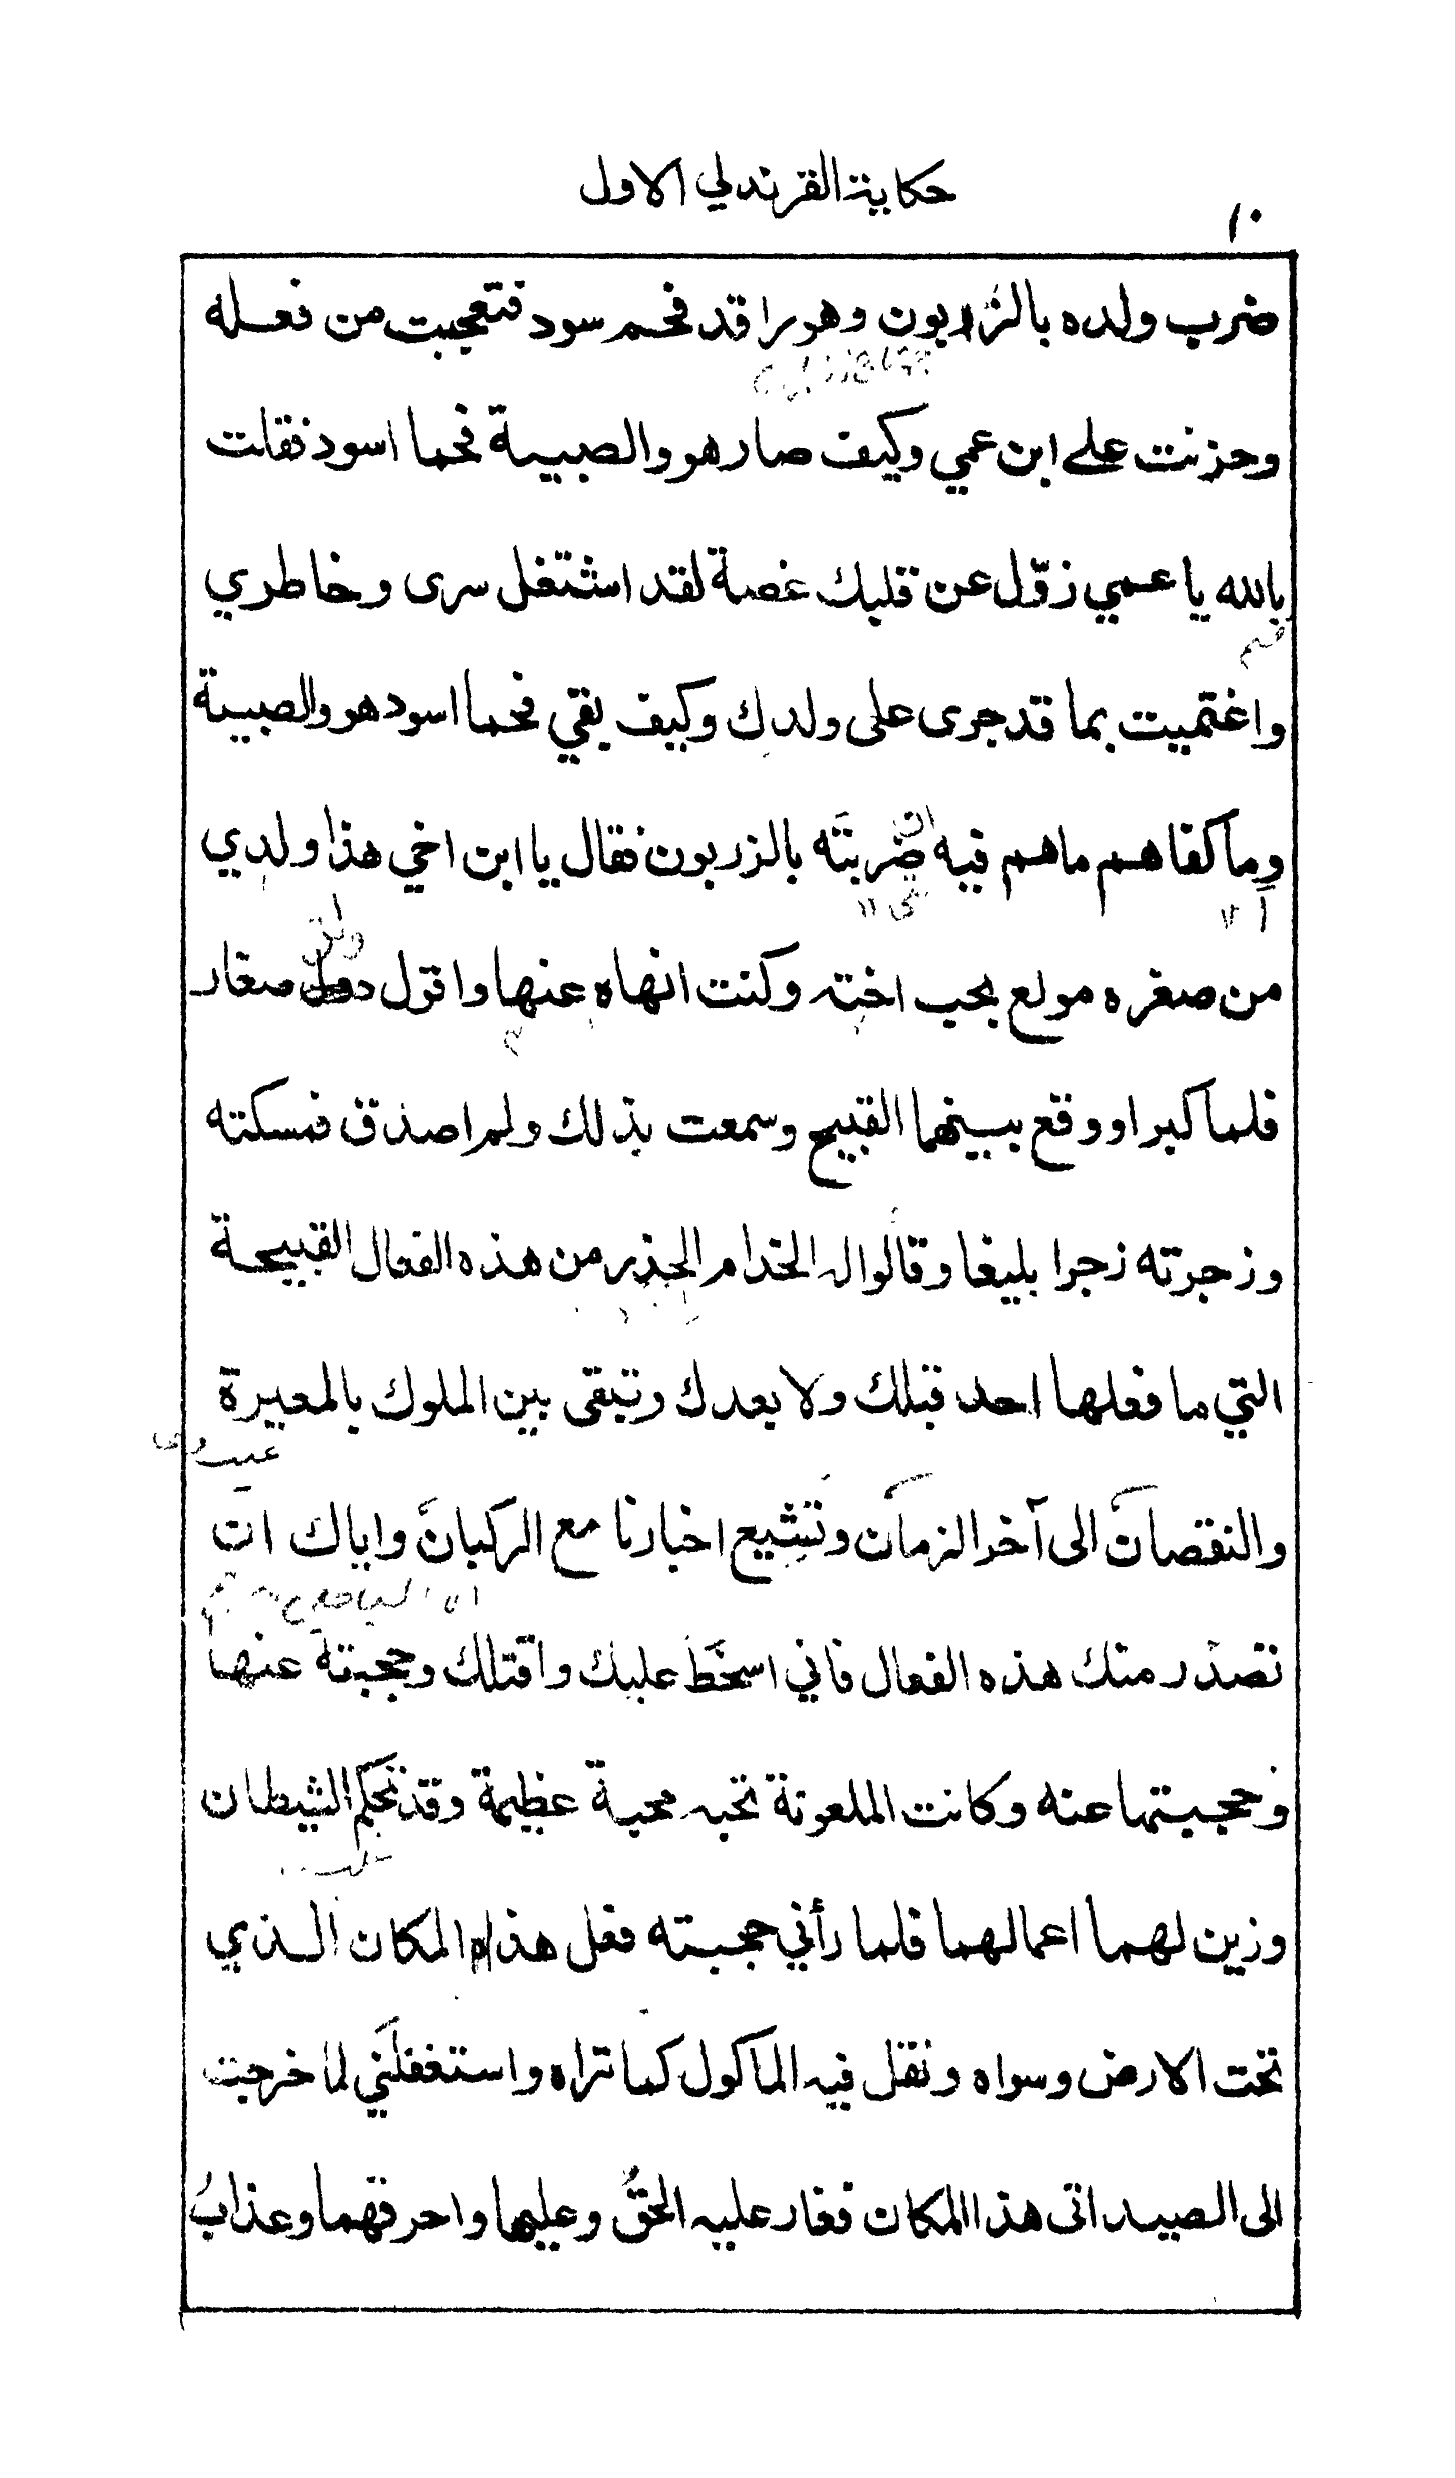 حكاية القرندلي الاول
١٠
ضرب ولده بالزربون وهو راقد فحم سود فتعجبت من فعله
وحزنت على ابن عمي وكيف صار هو والصبية فحما اسود فقلت
بالله يا عمي زوّل عن قلبك غصة لقد اشتغل سرى وخاطري
واغتميت بما قد جرى على ولدك وكيف بقي فحما اسود هو والصبية
وما كفاهم ما هم فيه ضربته بالزربون فقال يا ابن اخي هذا ولدي
من صغره مولع بحب اخته وكنت انهاه عنها واقول صغار
فلما كبرا ووقع بينهما القبيح وسمعت بذلك ولم اصدق فمسكته
وزجرته زجرا بليغا وقالوا له الخدام الحذر من هذه الفعال القبيحة
التي ما فعلها احد قبلك ولا بعدك وتبقى بين الملوك بالمعيرة
والنقصان الى آخر الزمان وتشيع اخبارنا مع الركبان واياك ان
تصدر منك هذه الفعال فاني اسخط عليك واقتلك وحجبته عنها
وحجبتها عنه وكانت الملعونة تحبه محبة عظيمة وقد تحكم الشيطان
وزين لهما اعمالهما فلما رأني حجبته فعل هذا المكان الذي
تحت الارض وسواه ونقل فيه الماكول كما تراه واستغفلني لما خرجت
الى الصيد اتى هذا المكان فغار عليه الحق وعليها واحرقهما وعذاب